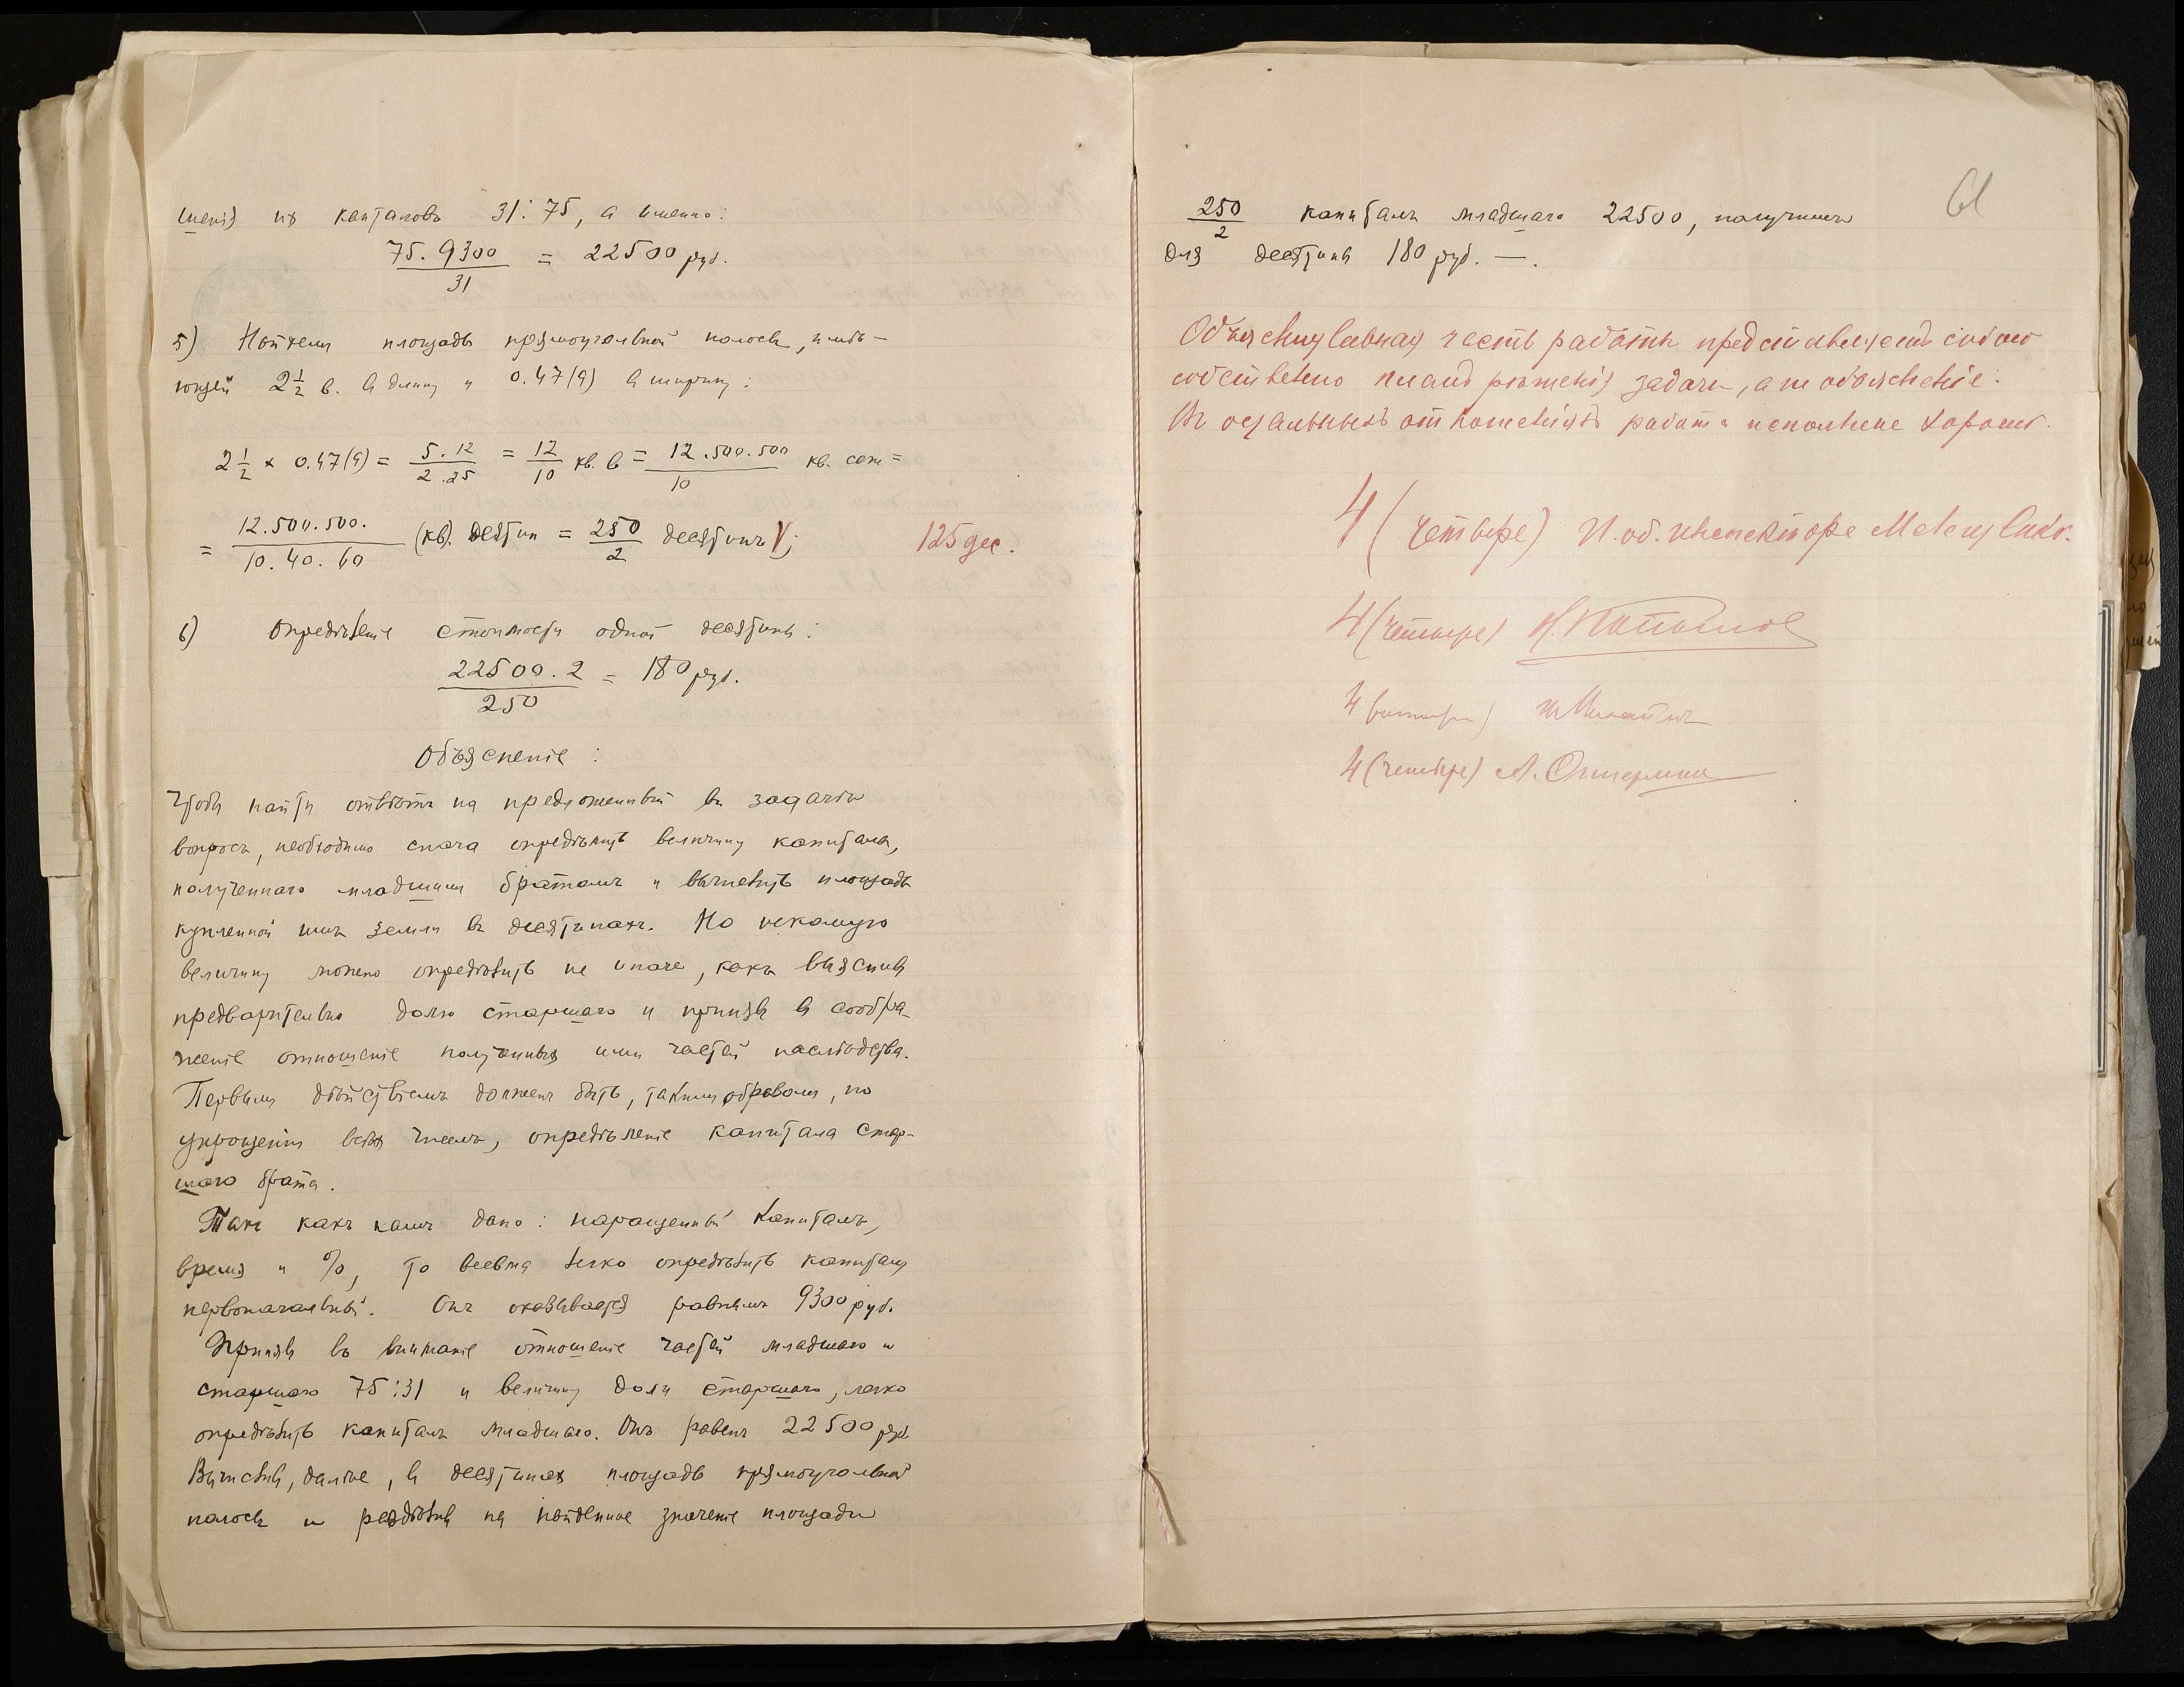 шенія ихъ капталовъ 31:75, а именно:
75. 9300 / 31 = 22500 руб.
5) Найдемъ площадь прямоугольной полосы, имѣ-
ющей 2 1/2 в. въ длину и 0.47(9) в ширину:
2 1/2 × 0.47(9) = 5.12 / 2.25 = 12/10 кв. в = 12.500.500 / 10 кв. саж =
= 12.500.500. / 10.40.60 (кв). десятин = 250/2 десятинъ; 125 дес.
6) Опредѣленіе стоимости одной десятины:
22500.2 / 250 = 180 руб.
Объясненіе:
Чтобы найти отвѣтъ на предложенный въ задачѣ
вопросъ, необходимо снача опредѣлить величину капитала,
полученнаго младшимъ братомъ и вычислить площадь
купленной имъ земли въ десятинахъ. Но искомую
величину можно опредѣлить не иначе, какъ выяснивъ
предварительно долю старшаго и принявъ въ сообра-
женіе отношеніе полученныхъ ими частей наслѣдства.
Первымъ дѣйствіемъ долженъ быть, такимъ образомъ, по
упрощеніи всѣхъ чиселъ, опредѣленіе капитала стар-
шаго брата.
Такъ какъ намъ дано: наращенный капиталъ,
время и %, то весьма легко опредѣлить капиталъ
первоначальный. Онъ оказывается равнымъ 9300 руб.
Принявъ во вниманіе отношеніе частей младшаго и
старшаго 75:31 и величину доли старшаго, легко
опредѣлить капиталъ младшаго. Онъ равенъ 22500 руб
Вычисливъ, далѣе, въ десятинахъ площадь прямоугольной
полосы и раздѣливъ на найденное значеніе площади
61
250/2 капиталъ младшаго 22500, получимъ
для десятины 180 руб. —.
Объяснительная часть работы представляетъ собою
собственно планъ рѣшенія задачи, а не объясненіе.
Въ остальныхъ отношеніяхъ работа исполнена хорошо.
4 (четыре) И. об. инспектора
4 (четыре)
4 (четыре)
4 (четыре) А.